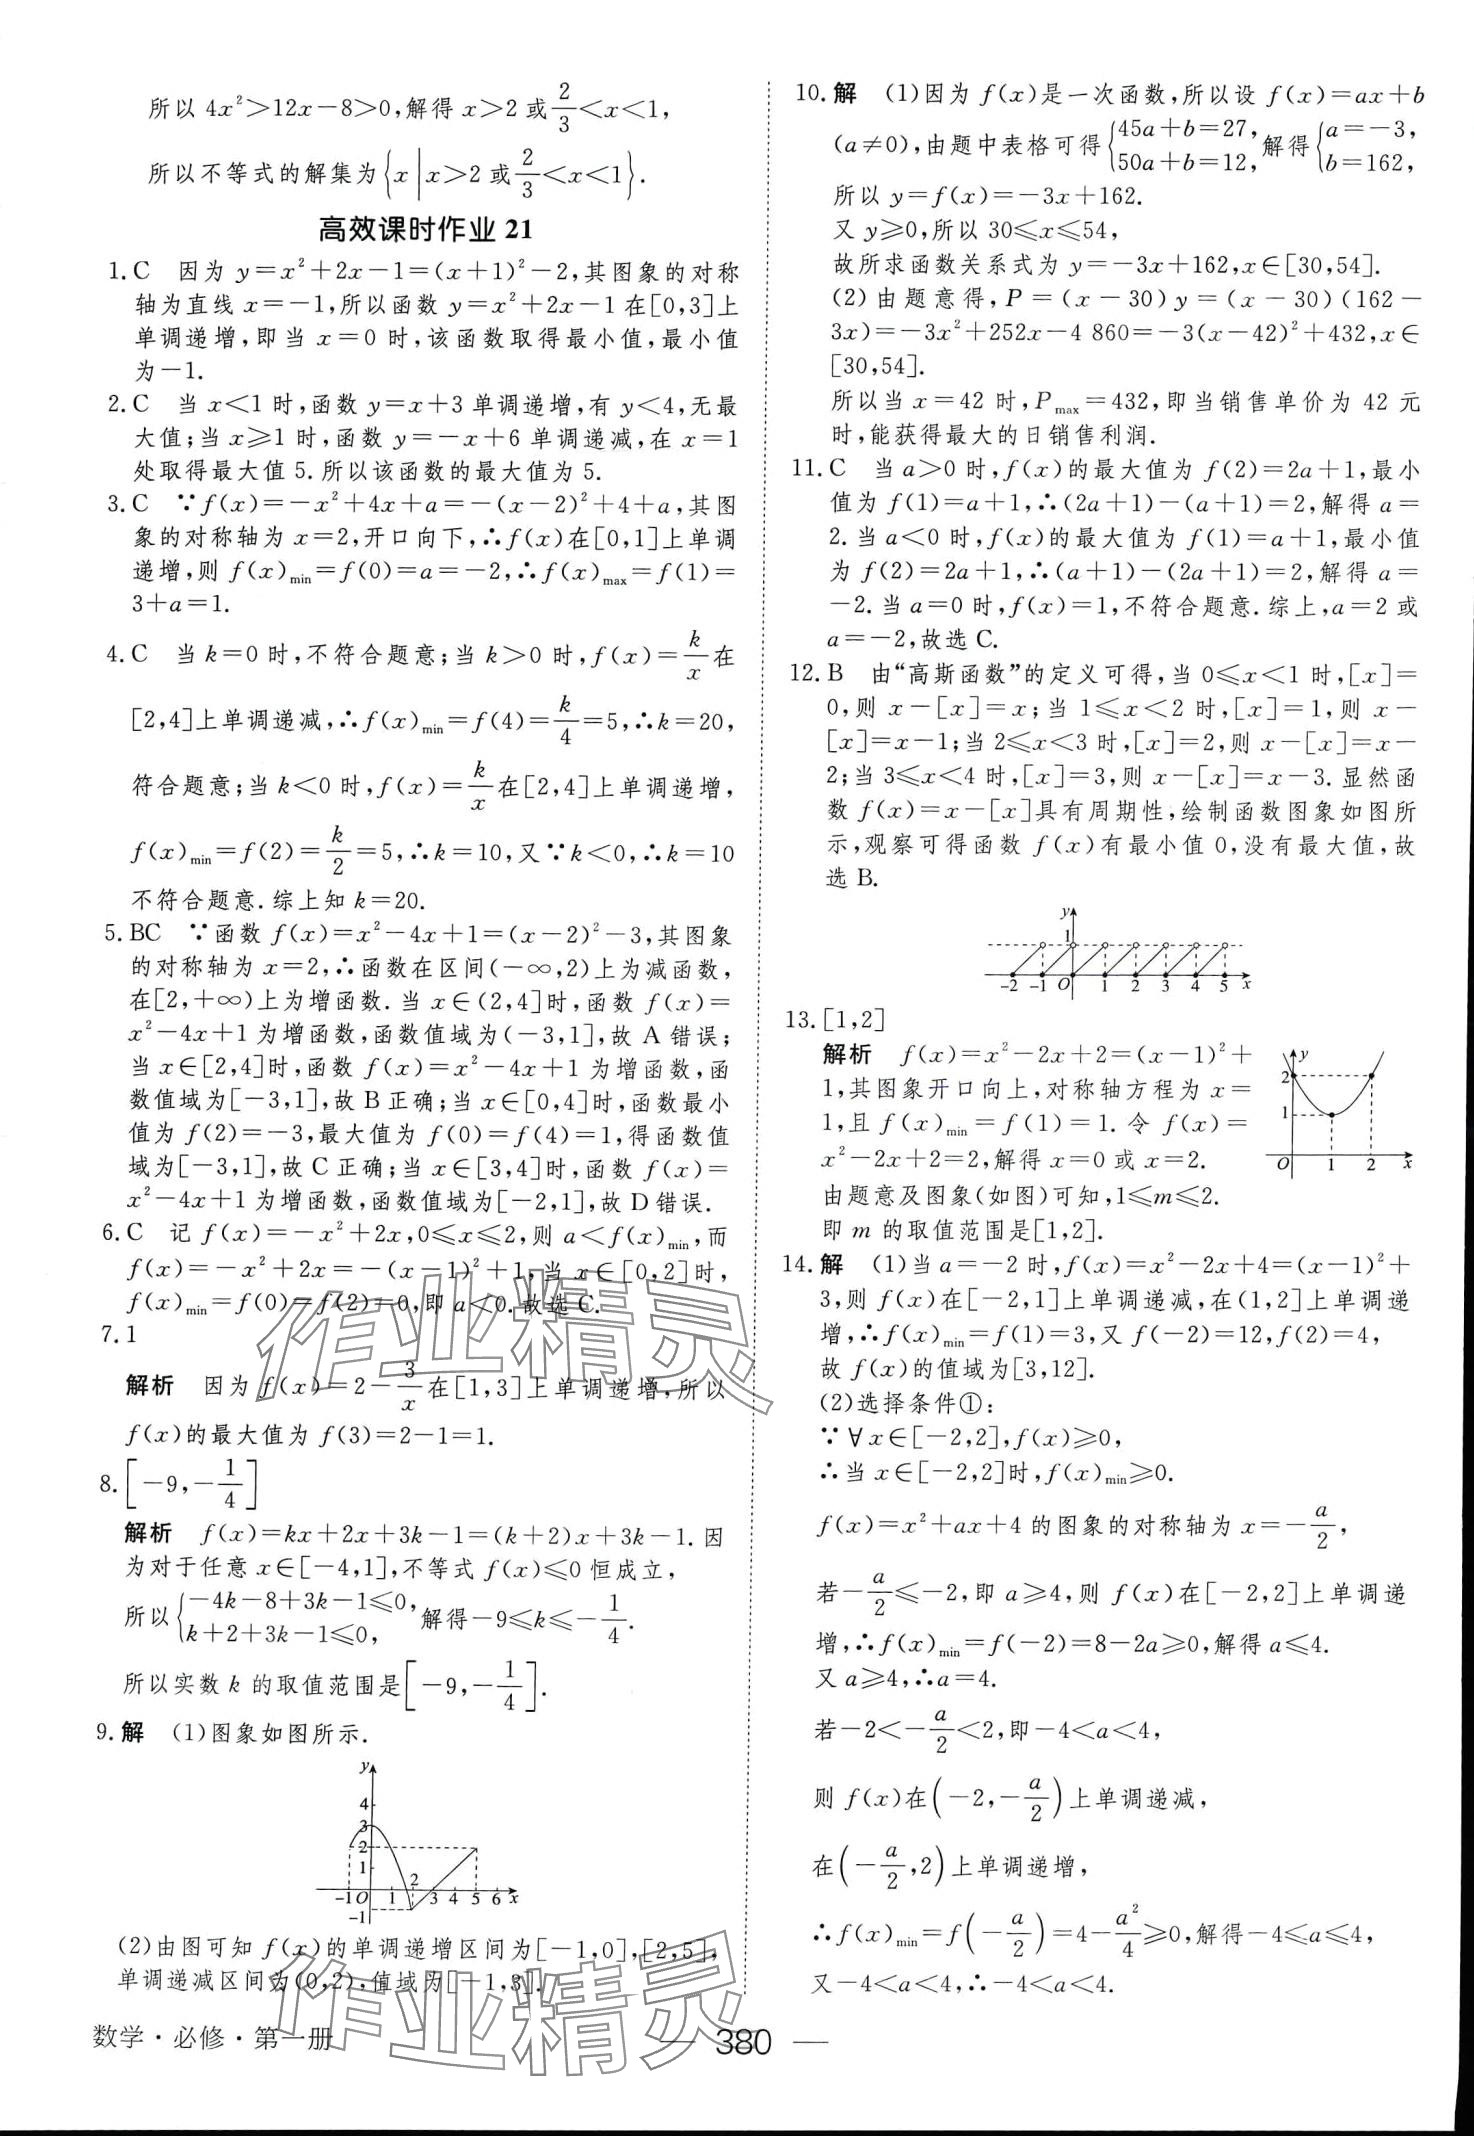 所以 4x²>12x-8>0,解得 x>2 或 2/3<x<1,
所以不等式的解集为{x|x>2 或 2/3<x<1}.
高效课时作业 21
1.C 因为 y=x²+2x-1=(x+1)²-2,其图象的对称
轴为直线 x=-1,所以函数 y=x²+2x-1 在[0,3]上
单调递增,即当 x=0 时,该函数取得最小值,最小值
为-1.
2.C 当 x<1 时,函数 y=x+3 单调递增,有 y<4,无最
大值;当 x⩾1 时,函数 y=-x+6 单调递减,在 x=1
处取得最大值 5.所以该函数的最大值为 5.
3.C ∵f(x)=-x²+4x+a=-(x-2)²+4+a,其图
象的对称轴为 x=2,开口向下,∴f(x)在[0,1]上单调
递增,则 f(x)min=f(0)=a=-2,∴f(x)max=f(1)=
3+a=1.
4.C 当 k=0 时,不符合题意;当 k>0 时,f(x)=k/x在
[2,4]上单调递减,∴f(x)min=f(4)=k/4=5,∴k=20,
符合题意;当 k<0 时,f(x)=k/x在[2,4]上单调递增,
f(x)min=f(2)=k/2=5,∴k=10,又∵k<0,∴k=10
不符合题意.综上知 k=20.
5.BC ∵函数 f(x)=x²-4x+1=(x-2)²-3,其图象
的对称轴为 x=2,∴函数在区间(-∞,2)上为减函数,
在[2,+∞)上为增函数.当 x∈(2,4]时,函数 f(x)=
x²-4x+1 为增函数,函数值域为(-3,1],故 A 错误;
当 x∈[2,4]时,函数 f(x)=x²-4x+1 为增函数,函
数值域为[-3,1],故 B 正确;当 x∈[0,4]时,函数最小
值为 f(2)=-3,最大值为 f(0)=f(4)=1,得函数值
域为[-3,1],故 C 正确;当 x∈[3,4]时,函数 f(x)=
x²-4x+1 为增函数,函数值域为[-2,1],故 D 错误.
6.C 记 f(x)=-x²+2x,0⩽x⩽2,则 a<f(x)min,而
f(x)=-x²+2x=-(x-1)²+1,当 x∈[0,2]时,
f(x)min=f(0)=f(2)=0,即 a<0.故选 C.
7.1
解析 因为 f(x)=2-3/x在[1,3]上单调递增,所以
f(x)的最大值为 f(3)=2-1=1.
8.[-9,-1/4]
解析 f(x)=kx+2x+3k-1=(k+2)x+3k-1.因
为对于任意 x∈[-4,1],不等式 f(x)⩽0 恒成立,
所以{-4k-8+3k-1⩽0, k+2+3k-1⩽0, 解得-9⩽k⩽-1/4.
所以实数 k 的取值范围是[-9,-1/4].
9.解 (1)图象如图所示.
y
4
3
2
1
-1 O 1 2 3 4 5 6 x
-1
(2)由图可知 f(x)的单调递增区间为[-1,0],[2,5],
单调递减区间为(0,2),值域为[-1,3].
10.解 (1)因为 f(x)是一次函数,所以设 f(x)=ax+b
(a≠0),由题中表格可得{45a+b=27, 50a+b=12, 解得{a=-3, b=162,
所以 y=f(x)=-3x+162.
又 y⩾0,所以 30⩽x⩽54,
故所求函数关系式为 y=-3x+162,x∈[30,54].
(2)由题意得,P=(x-30)y=(x-30)(162-
3x)=-3x²+252x-4 860=-3(x-42)²+432,x∈
[30,54].
所以当 x=42 时,Pmax=432,即当销售单价为 42 元
时,能获得最大的日销售利润.
11.C 当 a>0 时,f(x)的最大值为 f(2)=2a+1,最小
值为 f(1)=a+1,∴(2a+1)-(a+1)=2,解得 a=
2.当 a<0 时,f(x)的最大值为 f(1)=a+1,最小值
为 f(2)=2a+1,∴(a+1)-(2a+1)=2,解得 a=
-2.当 a=0 时,f(x)=1,不符合题意.综上,a=2 或
a=-2,故选 C.
12.B 由“高斯函数”的定义可得,当 0⩽x<1 时,[x]=
0,则 x-[x]=x;当 1⩽x<2 时,[x]=1,则 x-
[x]=x-1;当 2⩽x<3 时,[x]=2,则 x-[x]=x-
2;当 3⩽x<4 时,[x]=3,则 x-[x]=x-3.显然函
数 f(x)=x-[x]具有周期性,绘制函数图象如图所
示,观察可得函数 f(x)有最小值 0,没有最大值,故
选 B.
y
1
-2 -1 O 1 2 3 4 5 x
13.[1,2]
解析 f(x)=x²-2x+2=(x-1)²+
1,其图象开口向上,对称轴方程为 x=
1,且 f(x)min=f(1)=1.令 f(x)=
x²-2x+2=2,解得 x=0 或 x=2.
由题意及图象(如图)可知,1⩽m⩽2.
即 m 的取值范围是[1,2].
y
2
1
O 1 2 x
14.解 (1)当 a=-2 时,f(x)=x²-2x+4=(x-1)²+
3,则 f(x)在[-2,1]上单调递减,在(1,2]上单调递
增,∴f(x)min=f(1)=3,又 f(-2)=12,f(2)=4,
故 f(x)的值域为[3,12].
(2)选择条件①:
∵∀x∈[-2,2],f(x)⩾0,
∴当 x∈[-2,2]时,f(x)min⩾0.
f(x)=x²+ax+4 的图象的对称轴为 x=-a/2,
若-a/2⩽-2,即 a⩾4,则 f(x)在[-2,2]上单调递
增,∴f(x)min=f(-2)=8-2a⩾0,解得 a⩽4.
又 a⩾4,∴a=4.
若-2<-a/2<2,即-4<a<4,
则 f(x)在(-2,-a/2)上单调递减,
在(-a/2,2)上单调递增,
∴f(x)min=f(-a/2)=4-a²/4⩾0,解得-4⩽a⩽4,
又-4<a<4,∴-4<a<4.
数学·必修·第一册
— 380 —
作业精灵
作业精灵